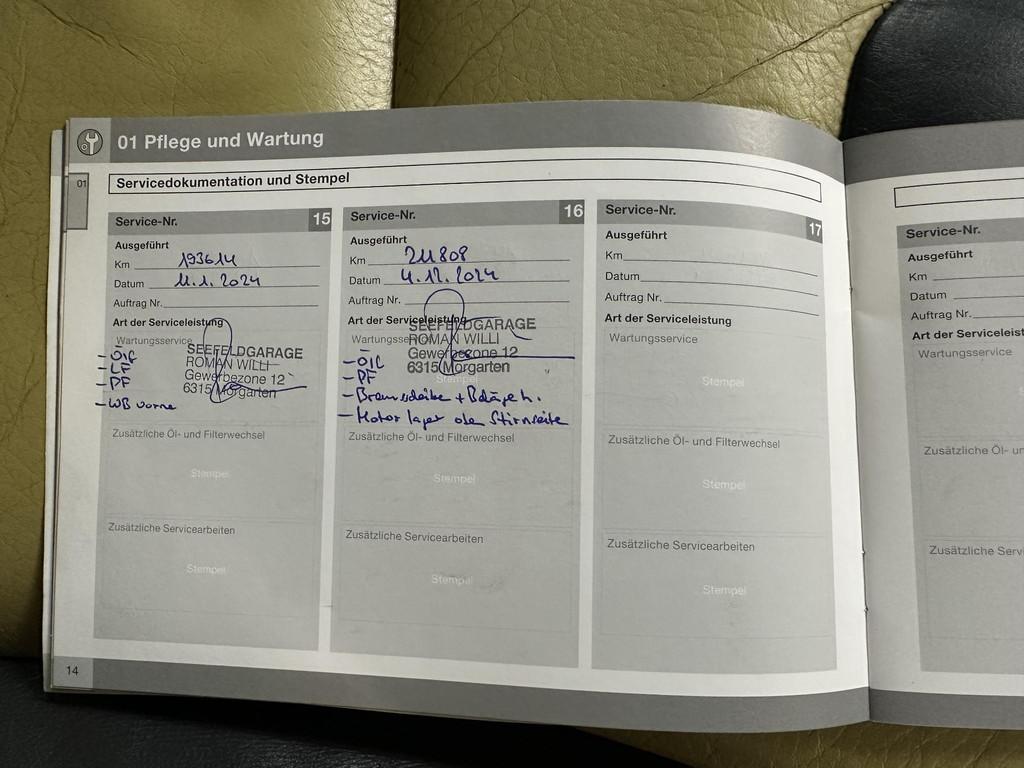 01 Pflege und Wartung
01
Servicedokumentation und Stempel
Service-Nr. 15
Ausgeführt
Km 193614
Datum 11.1.2024
Auftrag Nr.
Art der Serviceleistung
Wartungsservice
SEEFELDGARAGE
ROMAN WILLI
Gewerbezone 12
6315 Morgarten
- Öil
- LF
- PF
- WB vorne
Zusätzliche Öl- und Filterwechsel
Stempel
Zusätzliche Servicearbeiten
Stempel
14
Service-Nr. 16
Ausgeführt
Km 211808
Datum 4.12.2024
Auftrag Nr.
Art der Serviceleistung
Wartungsservice
SEEFELDGARAGE
ROMAN WILLI
Gewerbezone 12
6315 Morgarten
Stempel
- Öil
- PF
- Bremsscheibe + Beläge h.
- Motor lager obe Stirnseite
Zusätzliche Öl- und Filterwechsel
Stempel
Zusätzliche Servicearbeiten
Stempel
Service-Nr. 17
Ausgeführt
Km
Datum
Auftrag Nr.
Art der Serviceleistung
Wartungsservice
Stempel
Zusätzliche Öl- und Filterwechsel
Stempel
Zusätzliche Servicearbeiten
Stempel
Service-Nr.
Ausgeführt
Km
Datum
Auftrag Nr.
Art der Serviceleist
Wartungsservice
Zusätzliche Öl- un
Zusätzliche Servi